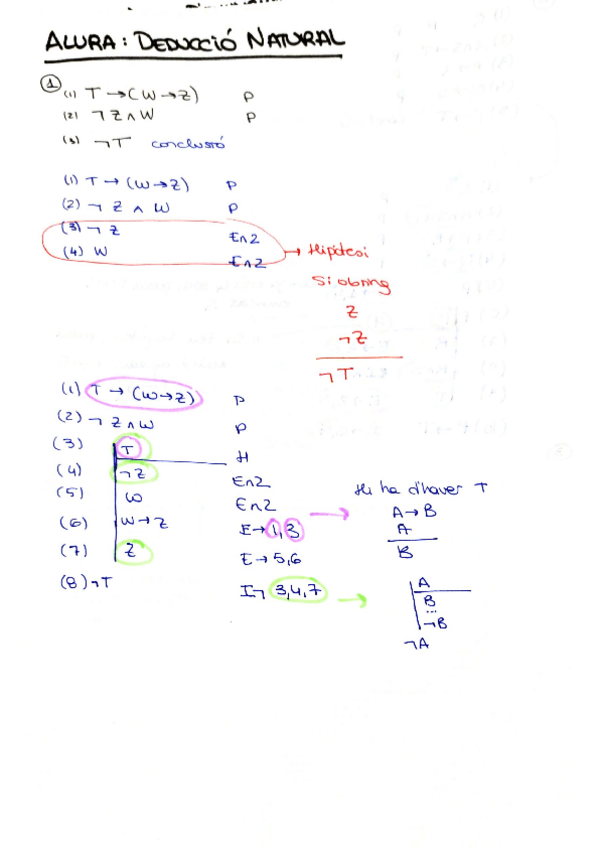 ALURA: DEDUCCIÓ NATURAL
1
(1) T → (W → Z) P
(2) ¬ Z ∧ W P
(3) ¬T conclusió
(1) T → (W → Z) P
(2) ¬ Z ∧ W P
(3) ¬ Z E∧2
(4) W E∧2
→ Hipòtesi
Si obting
Z
¬Z
¬T
(1) T → (W → Z) P
(2) ¬ Z ∧ W P
(3) T H
(4) ¬Z E∧2
(5) W E∧2
(6) W → Z E→ 1,3
(7) Z E→ 5,6
(8) ¬T I¬ 3,4,7
Hi ha d'haver T
A → B
A
B
A
B
...
¬B
¬A